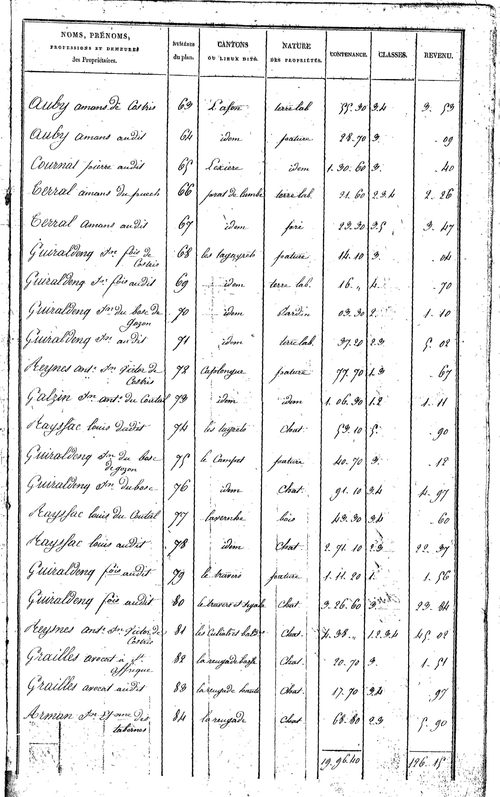 NOMS, PRÉNOMS, PROFESSIONS ET DEMEURES des Propriétaires. NUMÉROS du plan. CANTONS OU LIEUX DITS. NATURE DES PROPRIÉTÉS. CONTENANCE. CLASSES. REVENU.
Auby amans de Castris 63 terre lab. 55.30 3.4 3. 53
Auby amans audit 64 idem pature 28.70 3. . 09
Cournat pierre audit 65 idem 1.30.60 3. . 40
Cerral amans du puech 66 terre lab. 31.60 2.3.4 2. 26
Cerral amans audit 67 idem 23.30 3.5 3. 47
Guiraldenq Jn. fois de Castris 68 les pature 14.10 3. . 04
Guiraldenq Jn. fois audit 69 idem terre lab. 16. „ 4. . 70
Guiraldenq Jn. du bosc de gozon 70 idem Jardin 03.30 2. 1. 10
Guiraldenq Jn. audit 71 idem terre lab. 37.20 2.3 5. 02
Reynes ant. Jn. de Castris 72 Capolongue pature 77.70 1.3 . 67
Galzin Jn. ant. du Coutal 73 idem idem 1.06.30 1.2 1. 11
Rayssac louis dudit 74 les Chat. 53.10 5. . 90
Guiraldenq Jn. du bosc de gozon 75 le Campet pature 40.70 3. . 12
Guiraldenq Jn. du bosc 76 idem Chat. 91.10 3.4 4. 97
Rayssac louis du Coutal 77 lavernhe bois 43.30 3.4 . 60
Rayssac louis audit 78 idem Chat. 2.71.10 2.3 22. 37
Guiraldenq fois audit 79 le travers pature 1.11.20 1. 1. 56
Guiraldenq fois audit 80 le travers et Chat. 3.26.60 3. 23. 84
Reynes ant. Jn. de Castris 81 les Chat. 4.38. „ 1.2.3.4 45. 02
Grailles avocat à St. affrique 82 la reugade basse Chat. 20.70 3. 1. 51
Grailles avocat audit 83 la reugade haute Chat. 17.70 3.4 . 97
Arman Jn. des tabernes 84 la reugade Chat 68.80 2.3 5. 90
19.96.40 126. 15